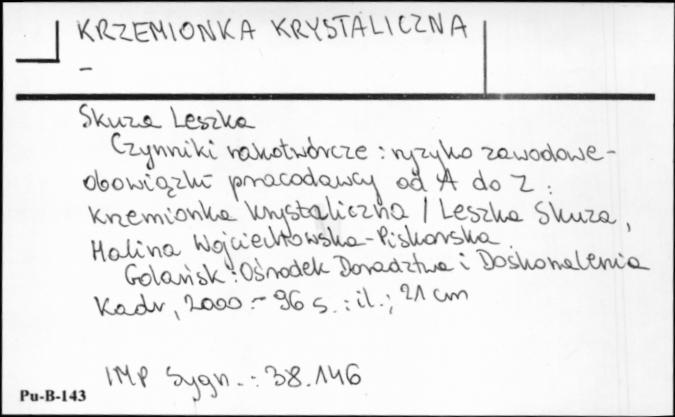 KRZEMIONKA KRYSTALICZNA
–
Skuza Leszka
Czynniki rakotwórcze : ryzyko zawodowe-
obowiązki pracodawcy od A do Z :
krzemionka krystaliczna / Leszka Skuza,
Halina Wojciechowska-Piskorska
Gdańsk : Ośrodek Doradztwa i Doskonalenia
Kadr, 2000 .- 96 s. : il. ; 21 cm
IMP Sygn. : 38.146
Pu-B-143